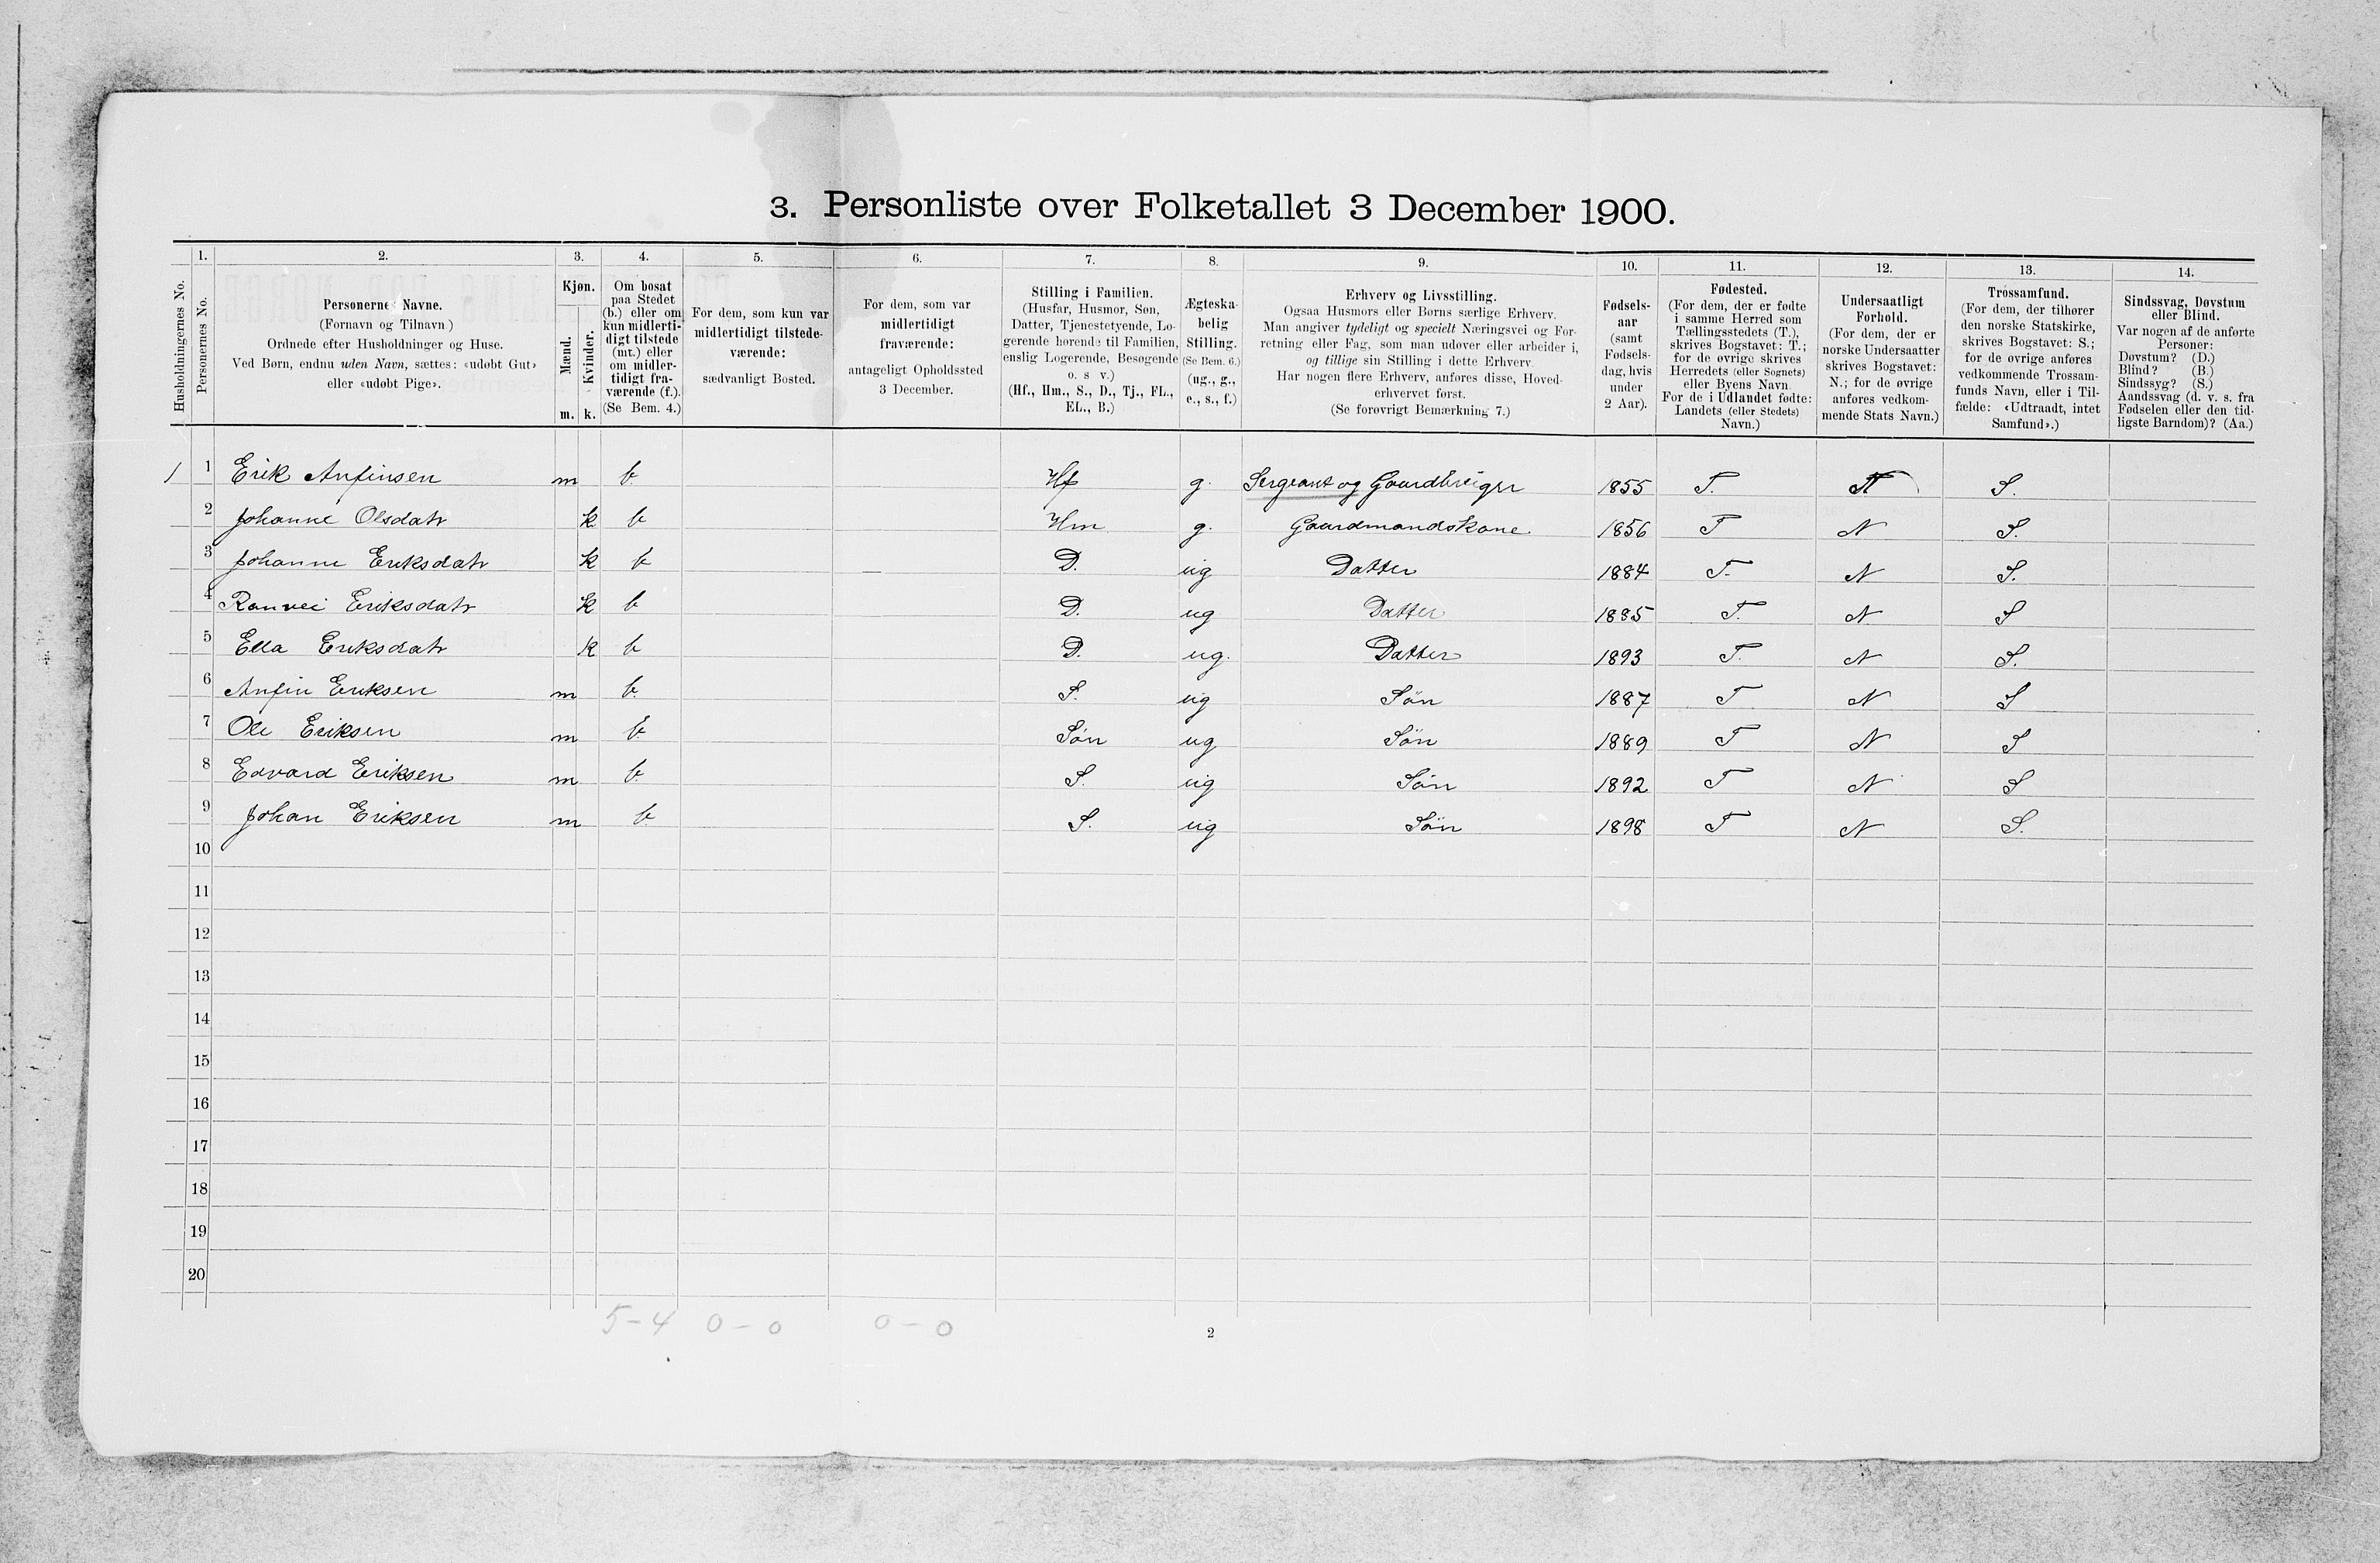 3. Personliste over Folketallet 3 December 1900.
1. 2. 3. 4. 5. 6. 7. 8. 9. 10. 11. 12. 13. 14.
Husholdningernes No.
Personernes No.
Personernes Navne.
(Fornavn og Tilnavn.)
Ordnede efter Husholdninger og Huse.
Ved Børn, endnu uden Navn, sættes: «udøbt Gut»
eller «udøbt Pige».
Kjøn.
Mænd.
Kvinder.
m. k.
Om bosat
paa Stedet
(b.) eller om
kun midlerti-
digt tilstede
(mt.) eller
om midler-
tidigt fra-
værende (f.).
(Se Bem. 4.)
For dem, som kun var
midlertidigt tilstede-
værende:
sædvanligt Bosted.
For dem, som var
midlertidigt
fraværende:
antageligt Opholdssted
3 December.
Stilling i Familien.
(Husfar, Husmor, Søn,
Datter, Tjenestetyende, Lo-
gerende hørende til Familien,
enslig Logerende, Besøgende
o. s v.)
(Hf., Hm., S., D., Tj., FL.,
EL., B.)
Ægteska-
belig
Stilling.
(Se Bem. 6.)
(ug., g.,
e., s., f.)
Erhverv og Livsstilling.
Ogsaa Husmors eller Børns særlige Erhverv.
Man angiver tydeligt og specielt Næringsvei og For-
retning eller Fag, som man udøver eller arbeider i,
og tillige sin Stilling i dette Erhverv.
Har nogen flere Erhverv, anføres disse, Hoved-
erhvervet først.
(Se forøvrigt Bemærkning 7.)
Fødsels-
aar
(samt
Fødsels-
dag, hvis
under
2 Aar).
Fødested.
(For dem, der er fødte
i samme Herred som
Tællingsstedets (T.),
skrives Bogstavet: T.;
for de øvrige skrives
Herredets (eller Sognets)
eller Byens Navn
For de i Udlandet fødte:
Landets (eller Stedets)
Navn.)
Undersaatligt
Forhold.
(For dem, der er
norske Undersaatter
skrives Bogstavet:
N.; for de øvrige
anføres vedkom-
mende Stats Navn.)
Trossamfund.
(For dem, der tilhører
den norske Statskirke,
skrives Bogstavet: S.;
for de øvrige anføres
vedkommende Trossam-
funds Navn, eller i Til-
fælde: «Udtraadt, intet
Samfund».)
Sindssvag, Døvstum
eller Blind.
Var nogen af de anførte
Personer:
Døvstum? (D.)
Blind? (B.)
Sindssyg? (S.)
Aandssvag (d. v. s. fra
Fødselen eller den tid-
ligste Barndom)? (Aa.)
1 1 Erik Anfinsen m b. Hf g. Sergeant og Gaardbruger 1855 T. N S.
2 Johanne Olsdatr k b Hm g. Gaardmandskone 1856 T N S.
3 Johanne Eriksdatr k b D. ug Datter 1884 T. N S.
4 Ranvei Eriksdatr k b D. ug Datter 1885 T. N S
5 Ella Eriksdatr k b D. ug. Datter 1893 T. N S.
6 Anfin Eriksen m b. S. ug Søn 1887 T N S
7 Ole Eriksen m b Søn ug Søn 1889 T N S
8 Edvard Eriksen m b S. ug Søn 1892 T N S
9 Johan Eriksen m b S. ug Søn 1898 T N S.
10
11
12
13
14
15
16
17
18
19
20
5-4 0-0 0-0
2